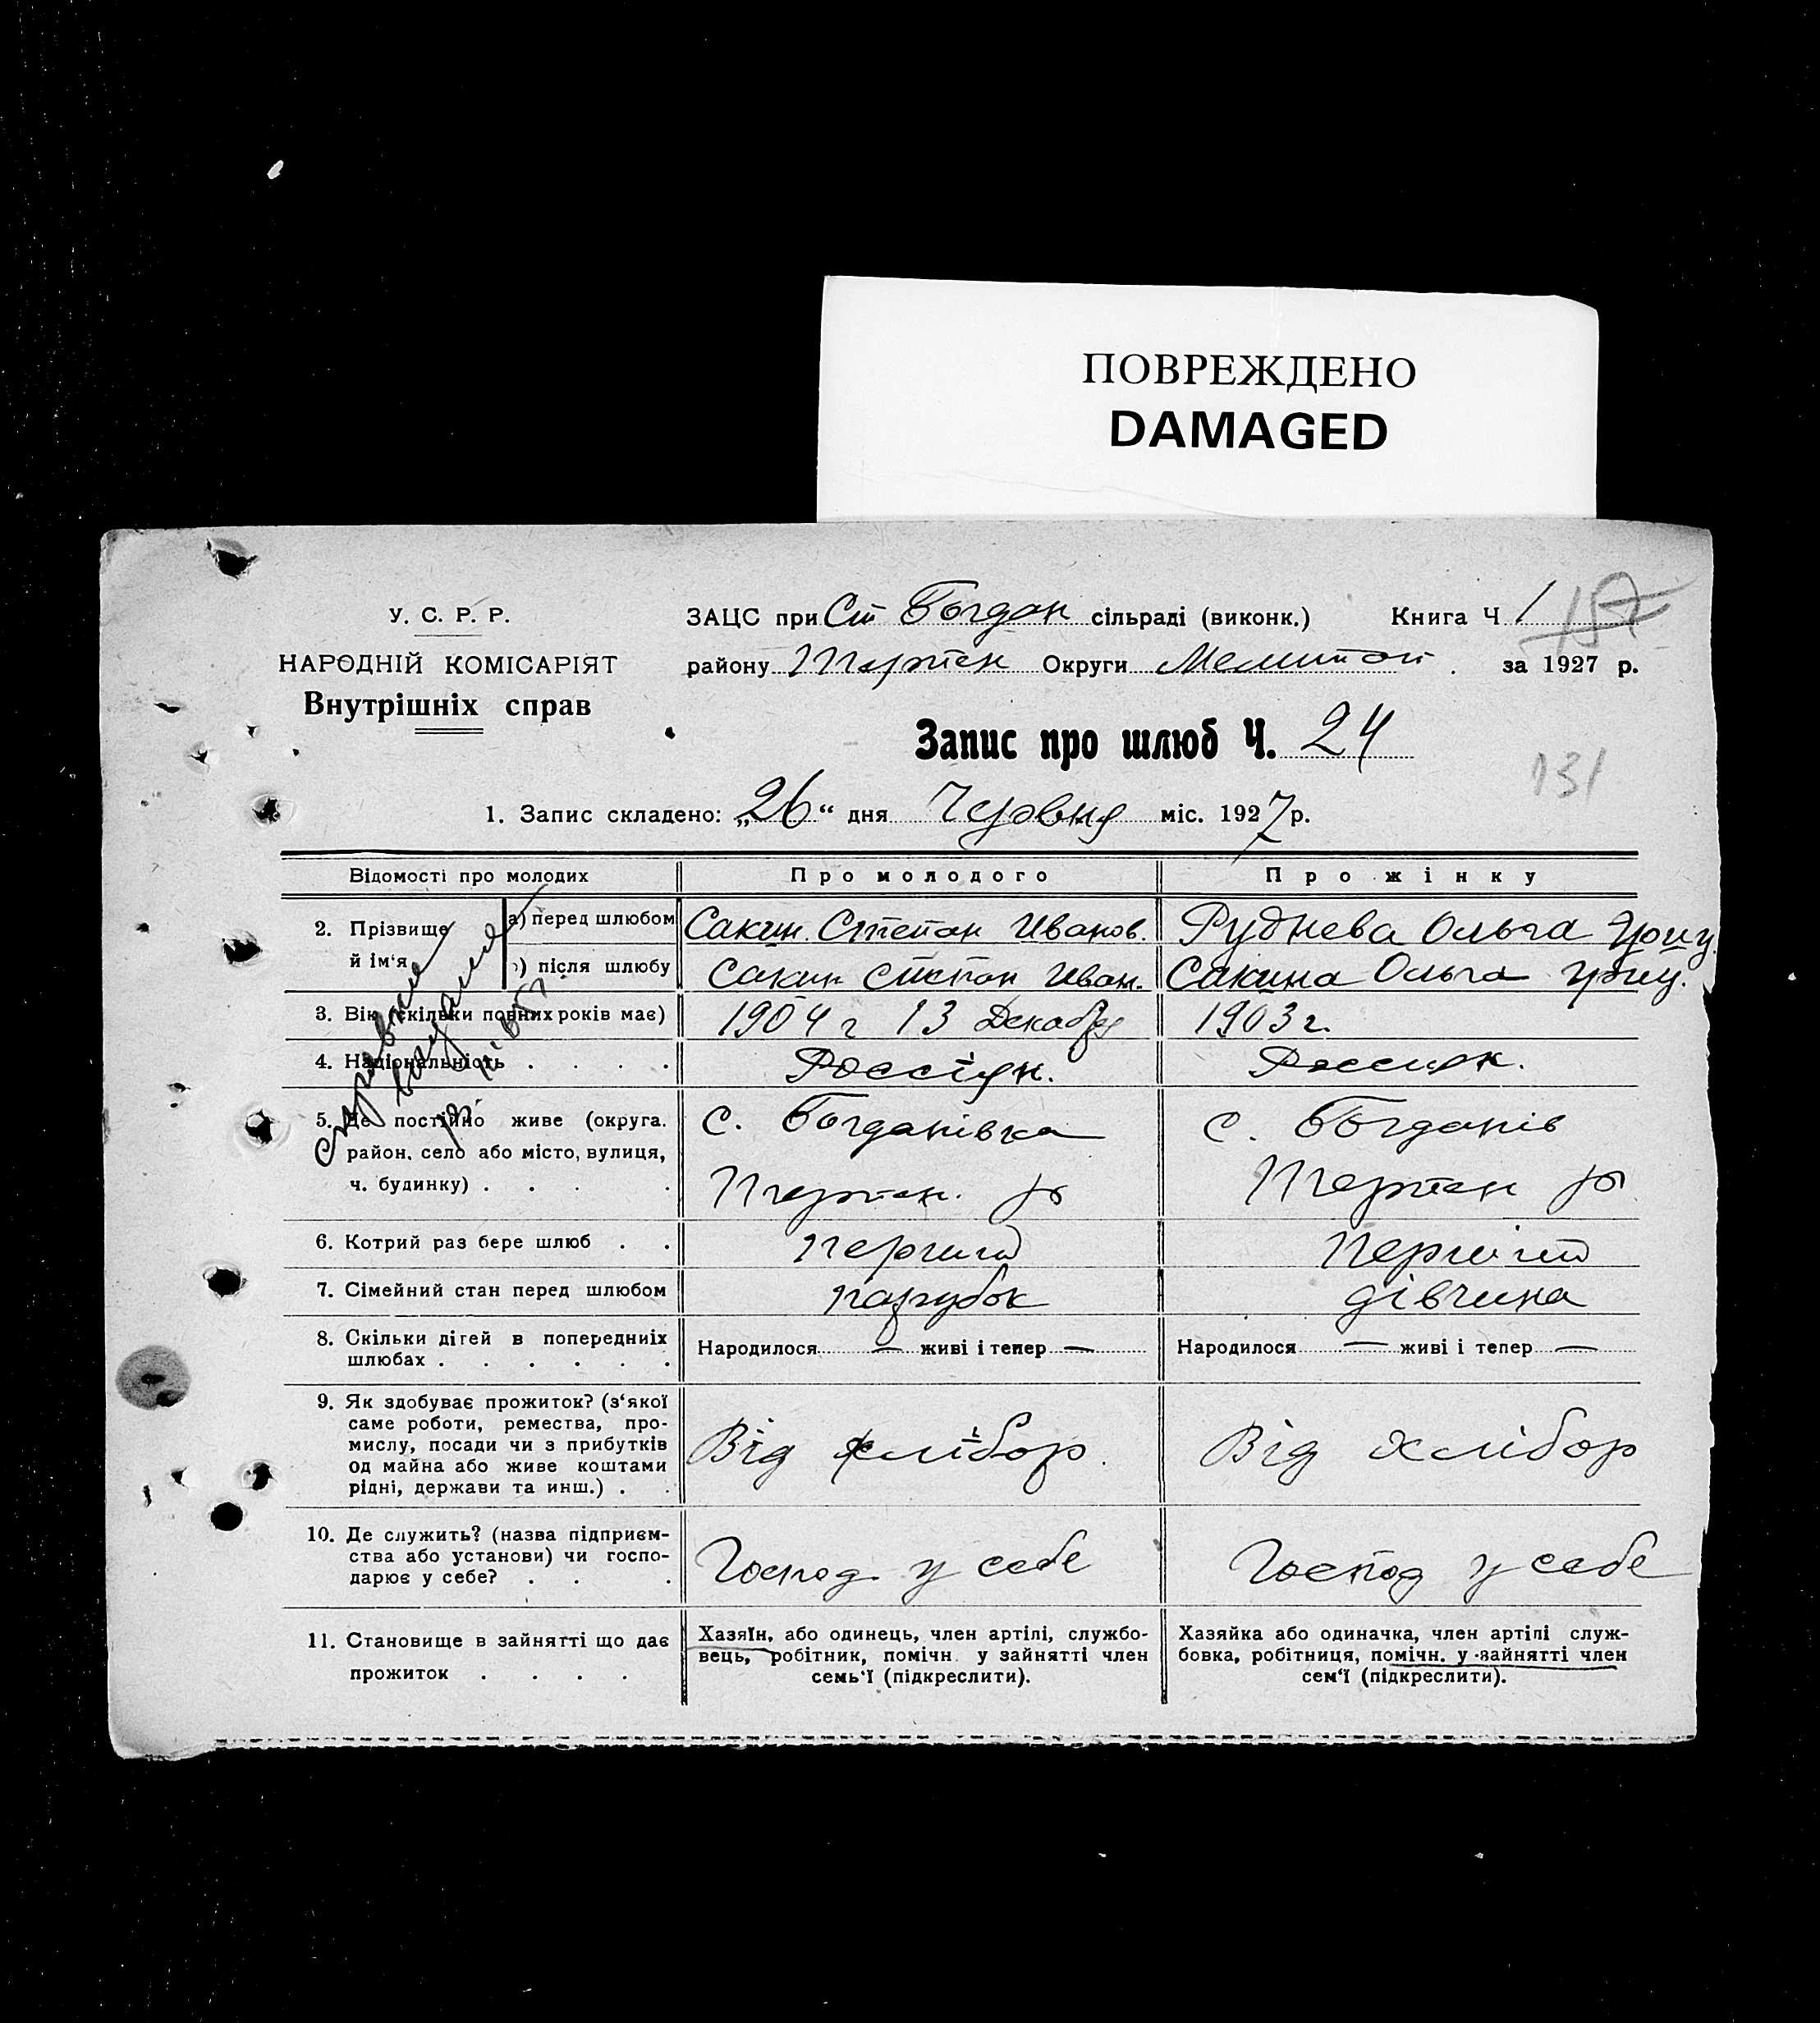 ПОВРЕЖДЕНО
DAMAGED
У. С. Р. Р.
НАРОДНІЙ КОМІСАРІЯТ
Внутрішніх справ
ЗАЦС при Ст Богдан сільраді (виконк.) Книга Ч 1
району Терпен Округи Мелитоп. за 1927 р.
Запис про шлюб Ч. 24
131
1. Запис складено: „26“ дня Червня міс. 1927 р.
Відомості про молодих Про молодого Про жінку
2. Прізвище й ім‘я
а) перед шлюбом Сакин Степан Иванов. Руднева Ольга Григ.
б) після шлюбу Сакин Степан Иван. Сакина Ольга Григ.
3. Вік скільки повних років має) 1904 г 13 Декабря 1903 г.
4. Національність . . . . Россіян. Россиян.
5. Де постійно живе (округа. район. село або місто, вулиця, ч. будинку) . . .
с. Богданівка с. Богданів
Терпен. р Терпен р
6. Котрий раз бере шлюб . . первий первий
7. Сімейний стан перед шлюбом парубок дівчина
8. Скільки дітей в попередниіх шлюбах . . . . . .
Народилося — живі і тепер — Народилося — живі і тепер —
9. Як здобуває прожиток? (з‘якої
саме роботи, ремества, про-
мислу, посади чи з прибутків
од майна або живе коштами
рідні, держави та инш.) . .
Від хлібор. Від хлібор
10. Де служить? (назва підприєм-
ства або установи) чи госпо-
дарює у себе? . . .
Господ. у себе Господ у себе
11. Становище в зайнятті що дає
прожиток . . . .
Хазяїн, або одинець, член артілі, службо-
вець, робітник, помічн. у зайнятті член
семь‘ї (підкреслити).
Хазяйка або одиначка, член артілі служ-
бовка, робітниця, помічн. у зайнятті член
сем‘ї (підкреслити).